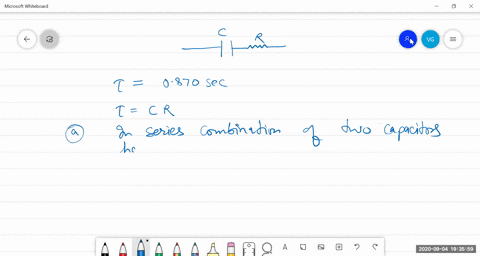 Microsoft Whiteboard
C
R
VG
τ = 0.870 sec
τ = C R
a In series combination of two capacitors
he
2020-09-04 19:35:59